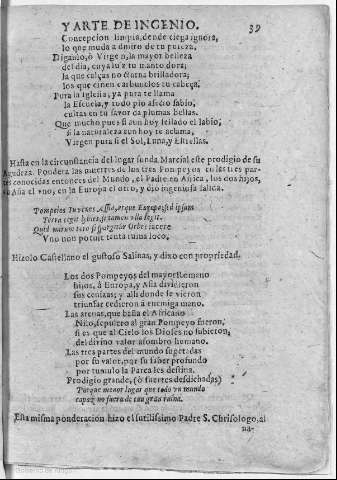 Y ARTE DE INGENIO. 39
Concepcion limpia, dende ciega ignora,
lo que muda a dentro de tu pureza,
Diganlo, ò Virgen, la mayor belleza
del dia, cuya luz tu manto dora,
la que calças nocturna brilladora,
los que ciñen carbunclos tu cabeça.
Pura la Iglesia, ya pura te llama
la Escuela, y todo pio afecto sabio,
cultas en tu favor da plumas bellas.
Que mucho pues si aun hoy sellado el labio,
si la naturaleza aun hoy te aclama,
Virgen pura si el Sol, Luna, y Estrellas.
Hasta en la circunstancia del lugar funda Marcial este prodigio de su
Agudeza. Pondera las muertes de los tres Pompeyos en las tres par-
tes conocidas entonces del Mundo, el Padre en Africa, los dos hijos,
en Asia el vno, en la Europa el otro, y dixo ingeniosa
Pompeios Iuvenes Asia, atque Europa, sed ipsum
Terra tegit Lybies, si tamen vlla tegit.
Quid mirum toto si spargitur Orbe? iacere
Vno non potuit tanta ruina loco.
Hizolo Castellano el gustoso Salinas, y dixo con propriedad.
Los dos Pompeyos del mayor Romano
hijos, à Europa, y Asia dividieron
sus cenizas; y alli donde se vieron
triunfar cedieron à enemiga mano.
Las arenas, que baña el Africano
Nilo, sepulcro al gran Pompeyo fueron,
si es que al Cielo los Dioses no subieron,
del divino valor assombro humano.
Las tres partes del mundo sugetadas
por su valor, por su saber profundo
por tumulo la Parca les destina.
Prodigio grande, (ò suertes desdichadas)
Porque menor lugar que todo vn mundo
capaz no fuera de tan gran ruina.
Esta misma ponderacion hizo el sutilissimo Padre S. Chrisologo, al
na-